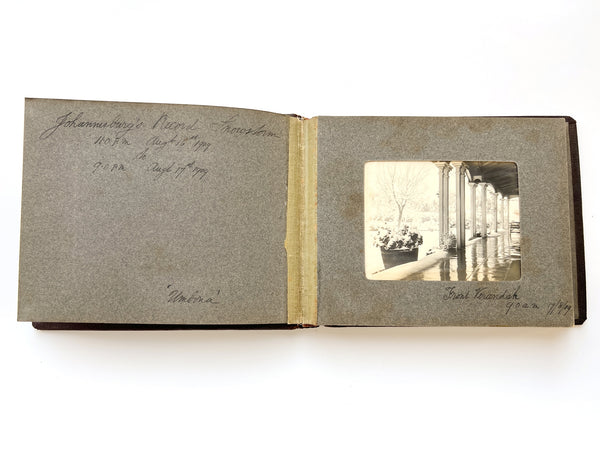 Johannesburg's Record Snowstorm
P.M. Augst 16th 1909
to
9.0 P.M. Augst 17th 1909
'Umbona'.
Front Verandah
9.0 a.m. 17/8/09